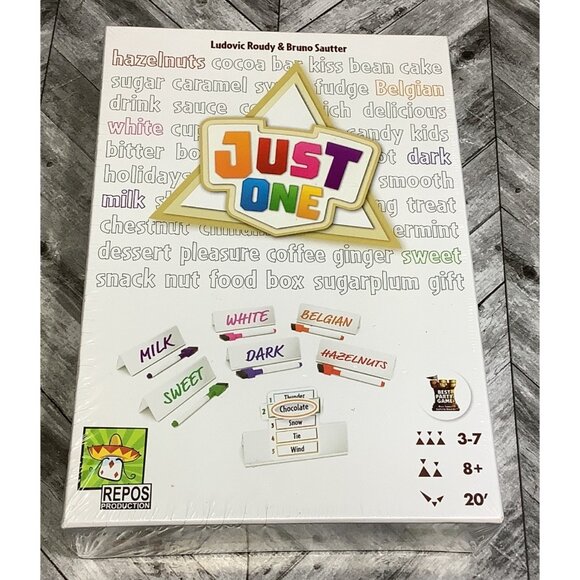 Ludovic Roudy & Bruno Sautter
hazelnuts cocoa bar kiss bean cake
sugar caramel fudge Belgian
drink sauce delicious
white candy kids
bitter dark
holidays smooth
milk treat
chestnut
dessert pleasure coffee ginger sweet
snack nut food box sugarplum gift
JUST
ONE
WHITE
BELGIAN
MILK
DARK
HAZELNUTS
SWEET
1 Thunder
2 Chocolate
3 Snow
4 Tie
5 Wind
BEST
PARTY
GAME
3-7
8+
20'
REPOS
PRODUCTION